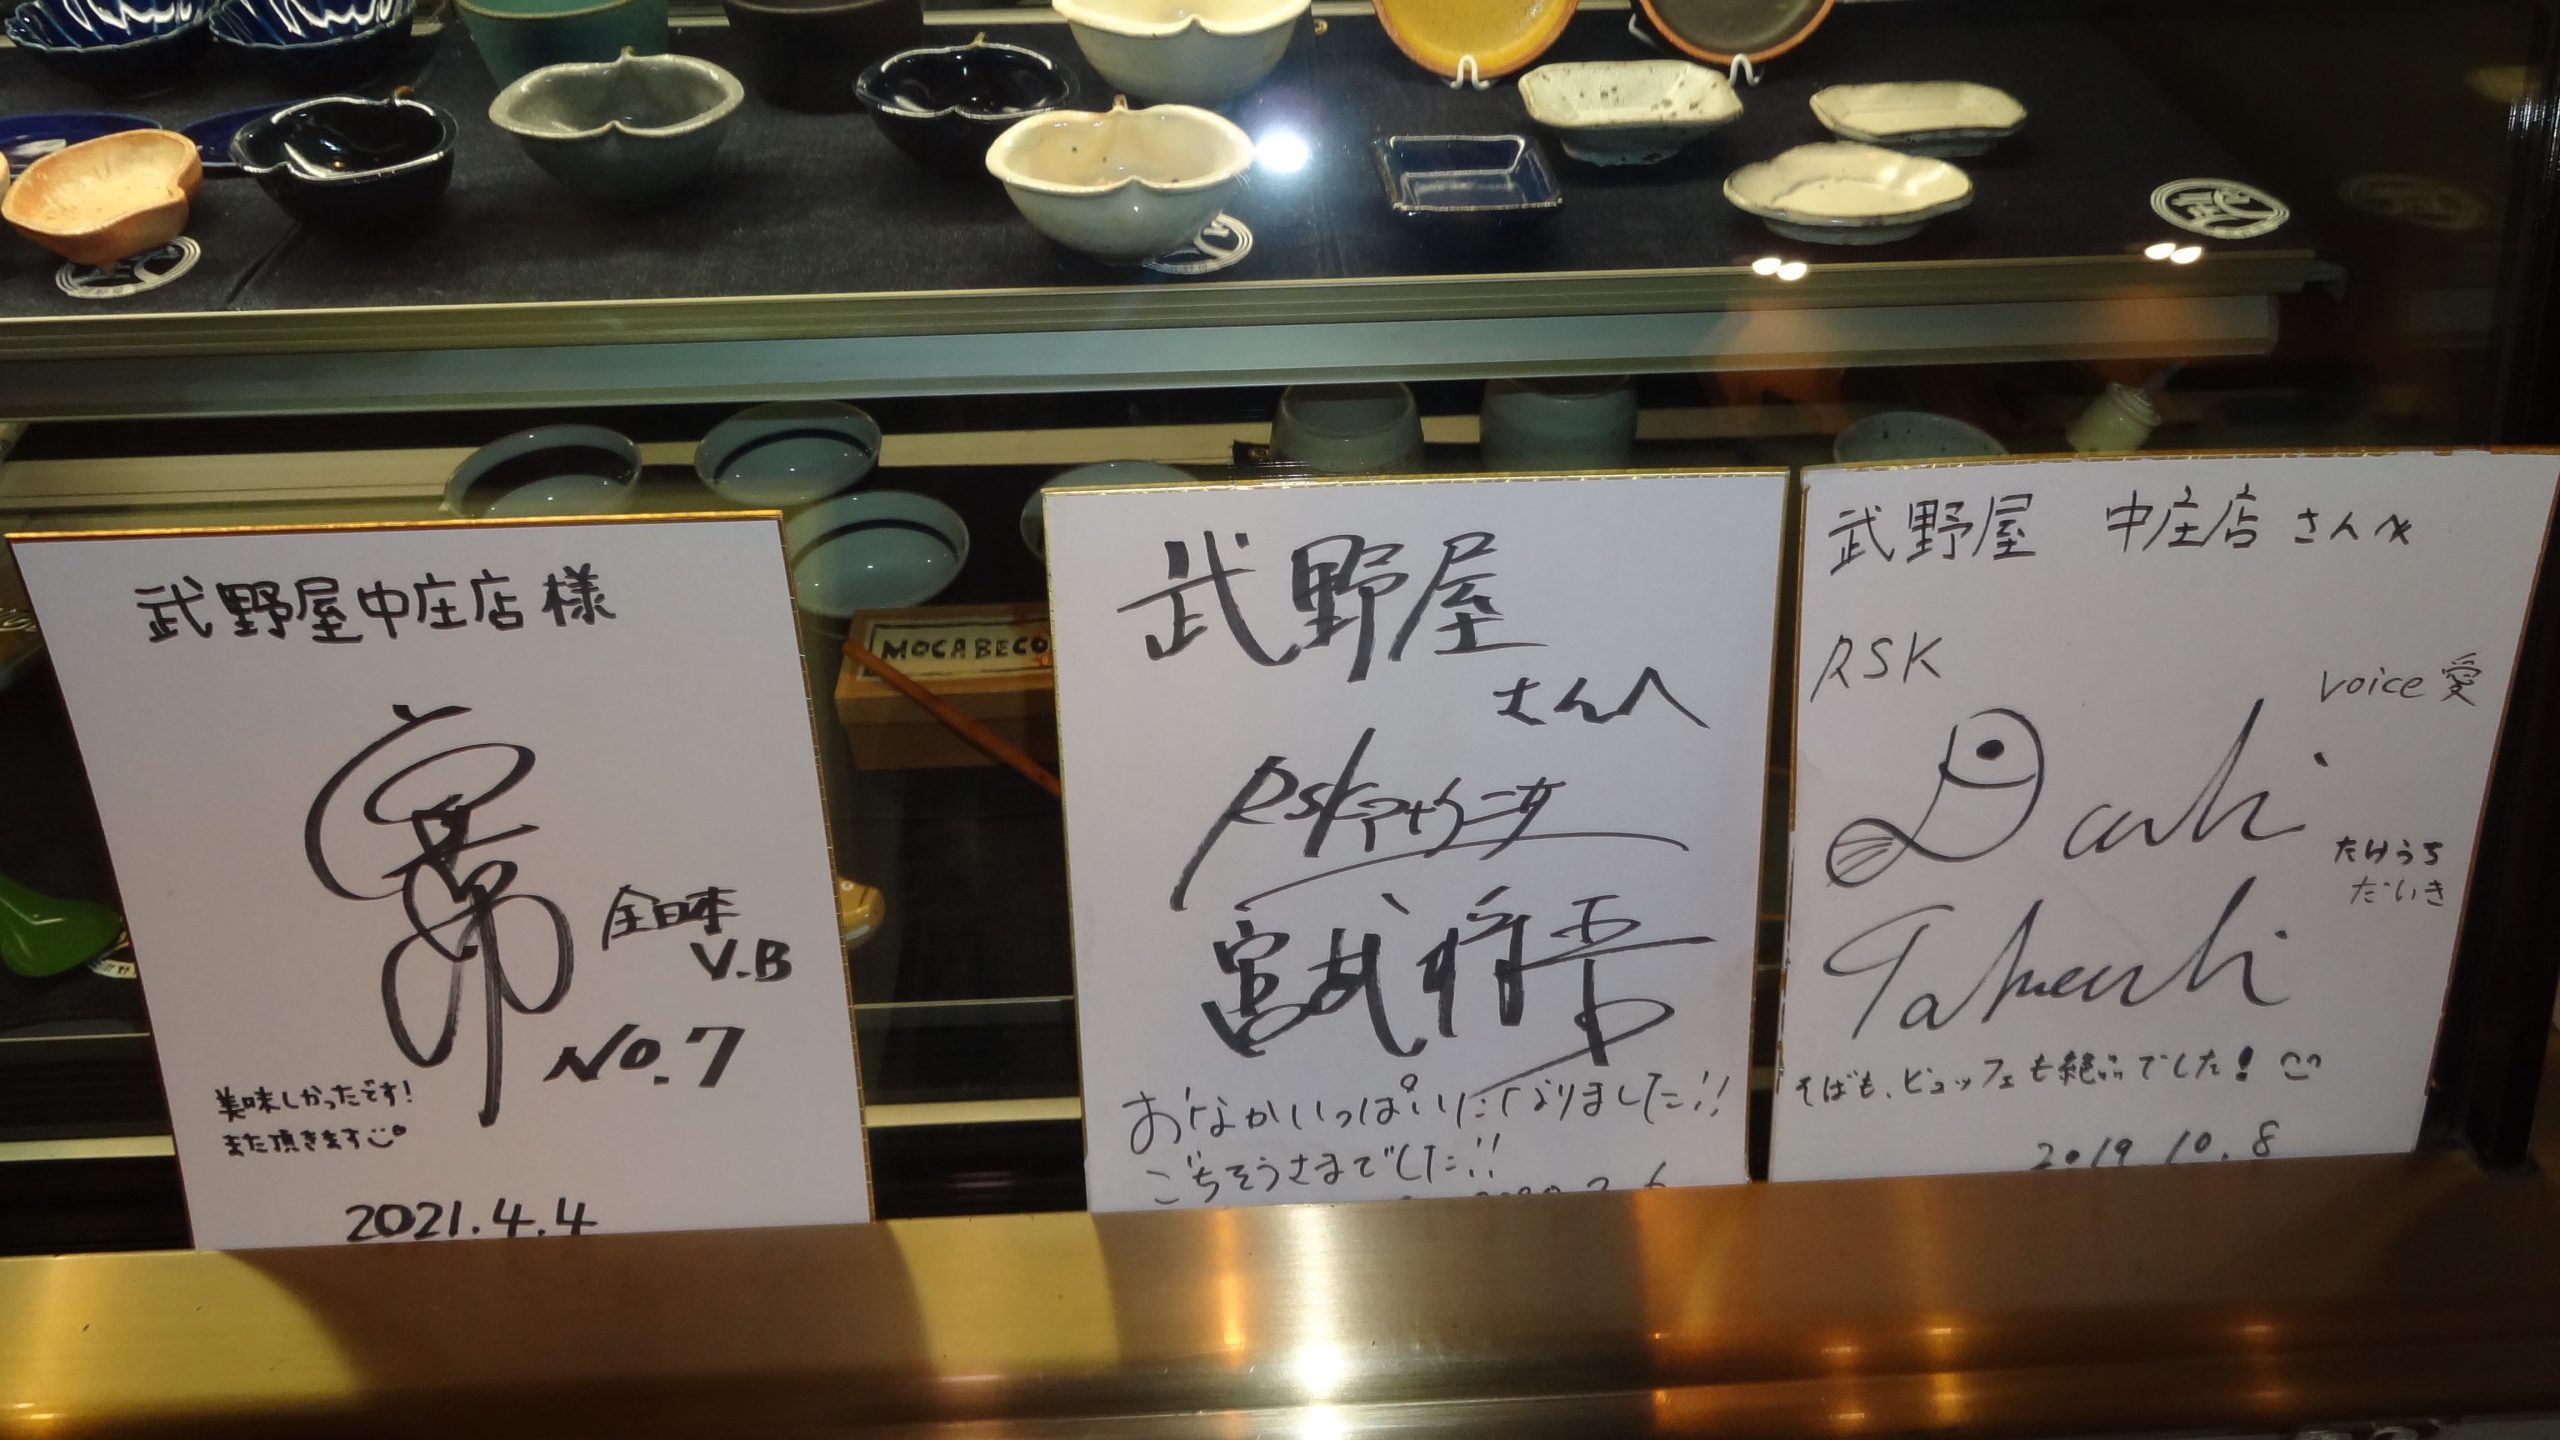 MOCABECO
武野屋中庄店様
全日本
V.B
No.7
美味しかったです!
また頂きます
2021.4.4
武野屋
さんへ
RSKアナウンサー
宮武将吾
おなかいっぱいになりました!!
ごちそうさまでした!!
武野屋 中庄店さんへ
RSK
voice愛
Daiki
たけうち
だいき
Takeuchi
そばも、ビュッフェも絶品でした!
2019.10.8